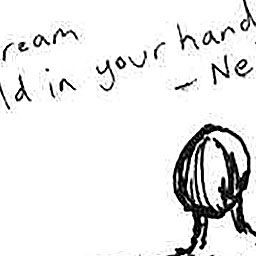 ream
ld in your hand
- Ne